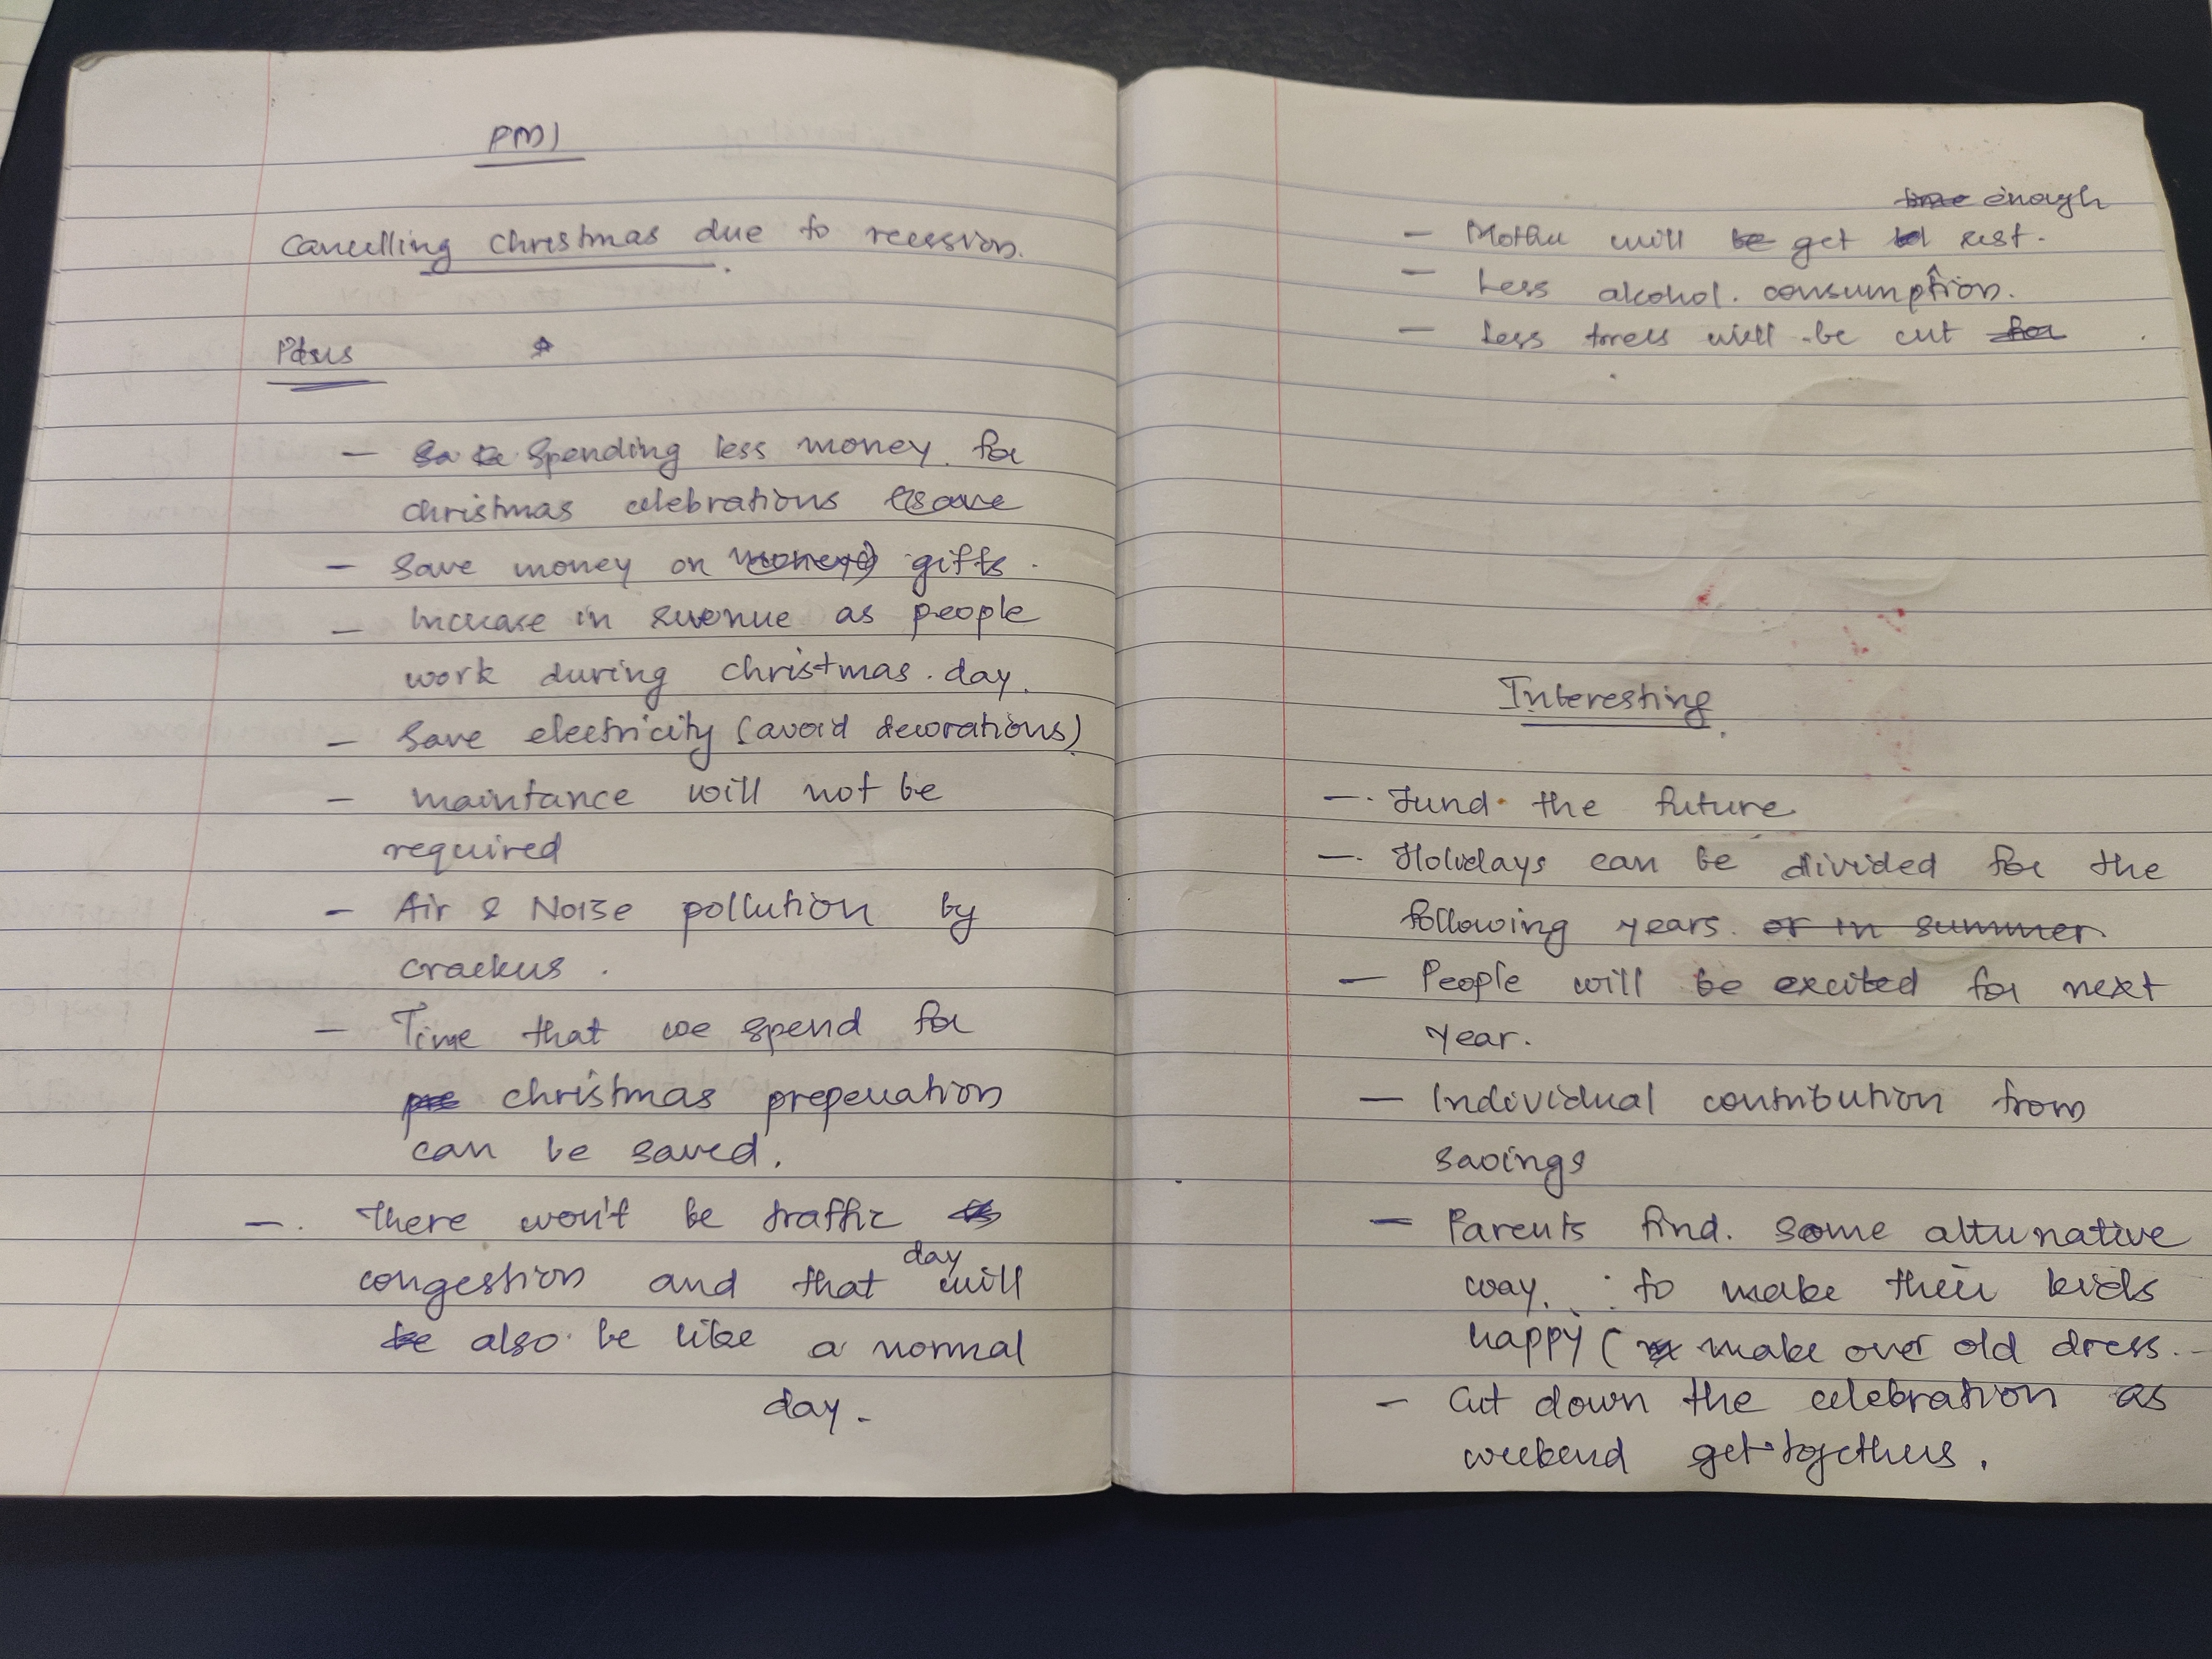 PMI
Cancelling Christmas due to recession.
Plus
- Spending less money for
christmas celebrations (save
- Save money on money) gifts.
- Increase in revenue as people
work during christmas day.
- Save electricity (avoid decorations)
- maintance will not be
required
- Air & Noise pollution by
crackers.
- Time that we spend for
pre christmas preperation
can be saved.
- There won't be traffic
congestion and that day will
be also be like a normal
day.
time enough
- Mother will be get rest.
- Less alcohol consumption.
- Less trees will be cut for
Interesting
- Fund the future
- Holidays can be divided for the
following years or in summer.
- People will be excited for next
year.
- Individual contribution from
savings
- Parents find some alternative
way to make their kids
happy ( make over old dress.
- Cut down the celebration as
weekend get togethers.